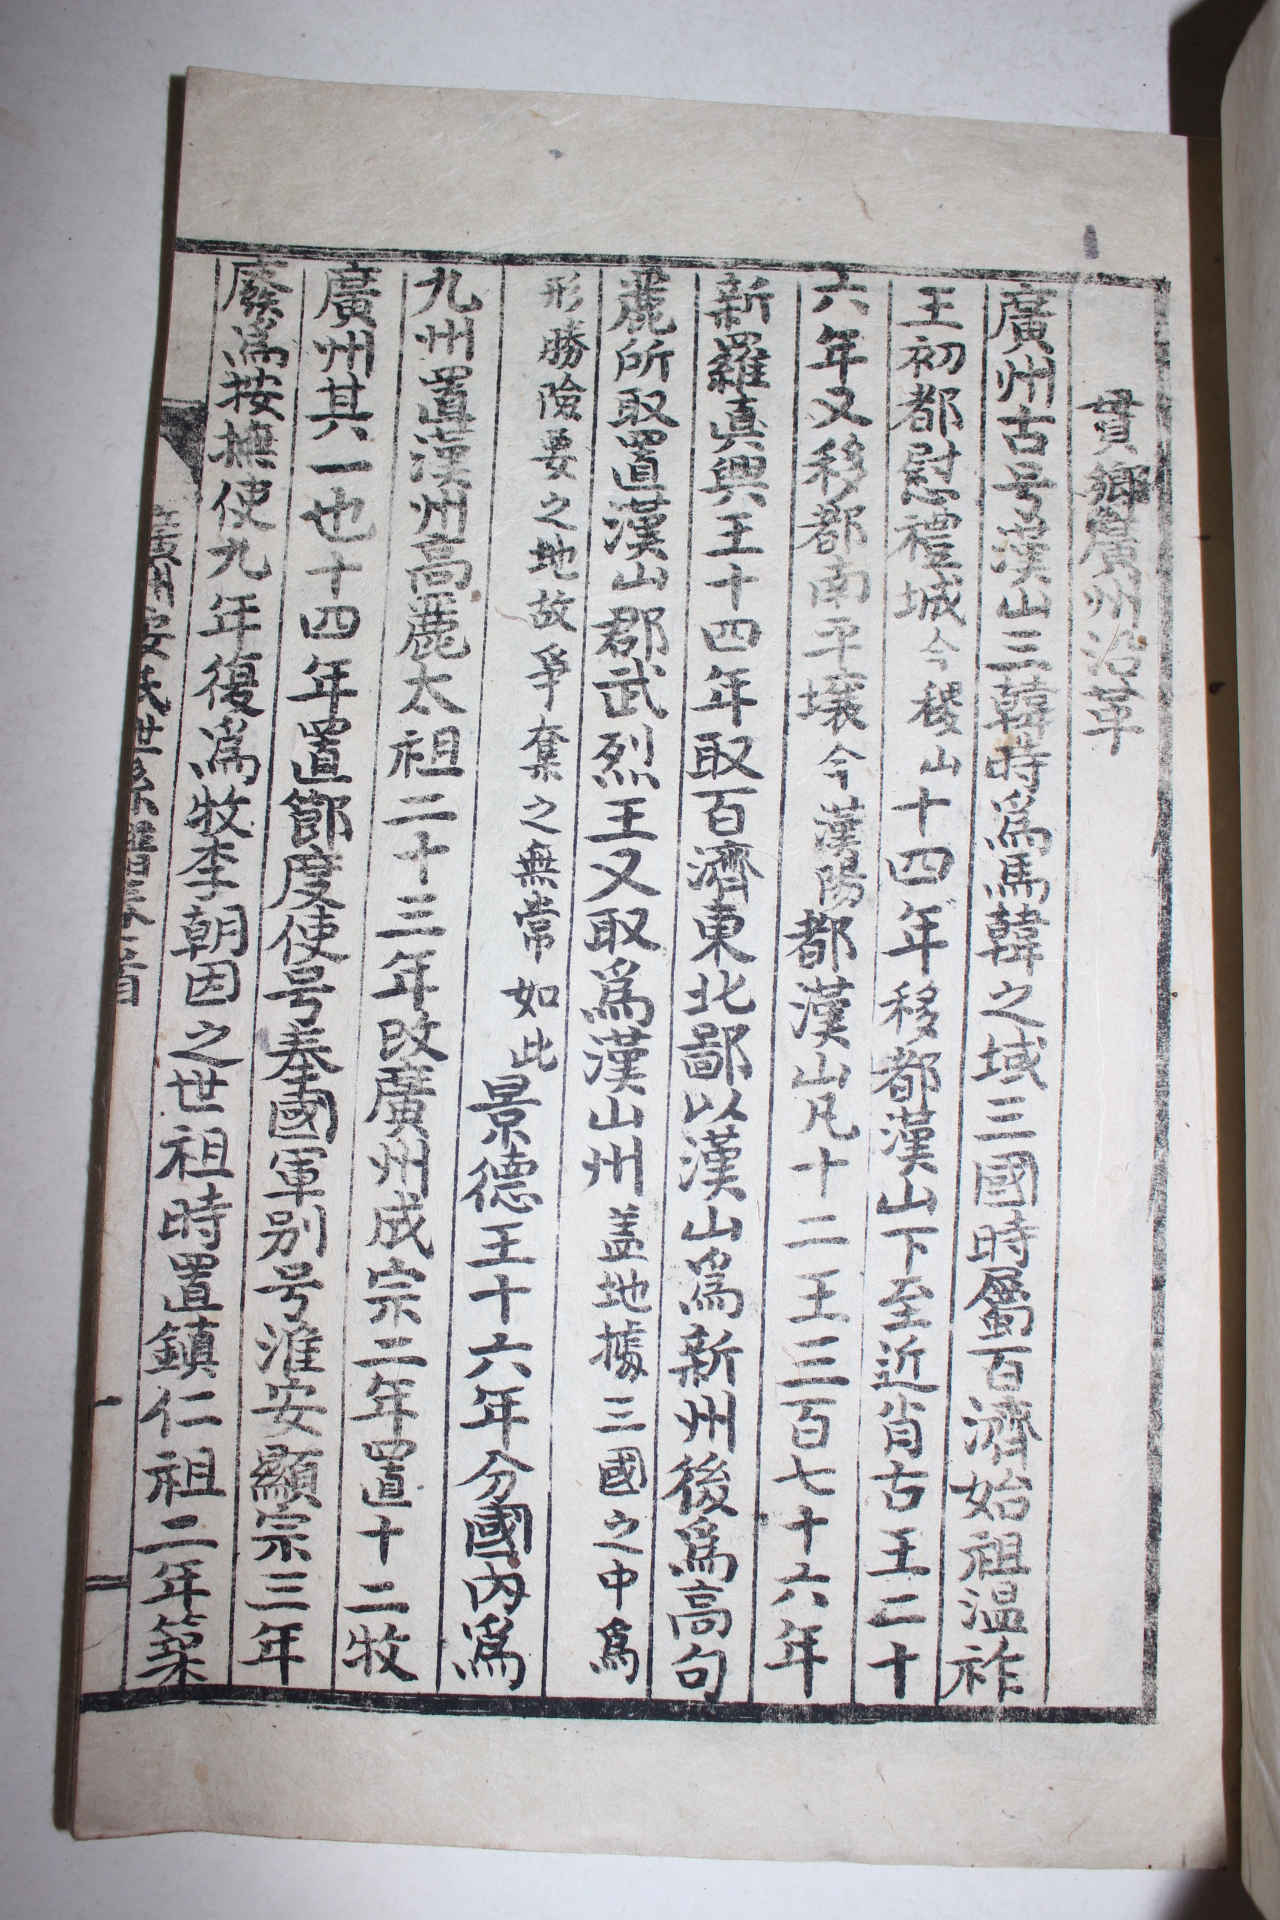 貫鄉廣州沿革
廣州古号漢山三韓時爲馬韓之域三國時屬百濟始祖温祚
王初都慰禮城今稷山十四年移都漢山下至近肖古王二十
六年又移都南平壤今漢陽都漢山凡十二王三百七十六年
新羅眞興王十四年取百濟東北鄙以漢山爲新州後爲高句
麗所取置漢山郡武烈王又取爲漢山州盖地據三國之中爲
形勝險要之地故爭奪之無常如此景德王十六年分國內爲
九州置漢州高麗太祖二十三年改廣州成宗二年置十二牧
廣州其一也十四年置節度使号奉國軍别号淮安顯宗三年
廢爲按撫使九年復爲牧李朝因之世祖時置鎮仁祖二年築
廣州安氏世系譜卷首